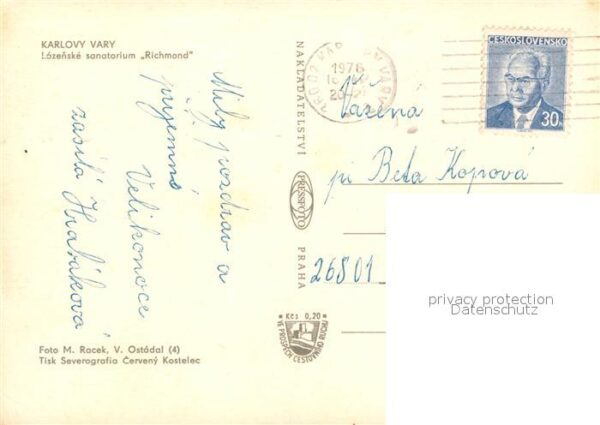 KARLOVY VARY
Lázeňské sanatorium „Richmond"
Milý pozdrav a
příjemné
Velikonoce
zasílá Hrabáková
Foto M. Racek, V. Ostódal (4)
Tisk Severografia Červený Kostelec
NAKLADATELSTVÍ
PRESSFOTO
PRAHA
Kčs 0,20
VE PROSPĚCH CESTOVNÍHO RUCHU
1976
ČESKOSLOVENSKO
30
Vážená
pí Beta Kopová
26801
privacy protection
Datenschutz